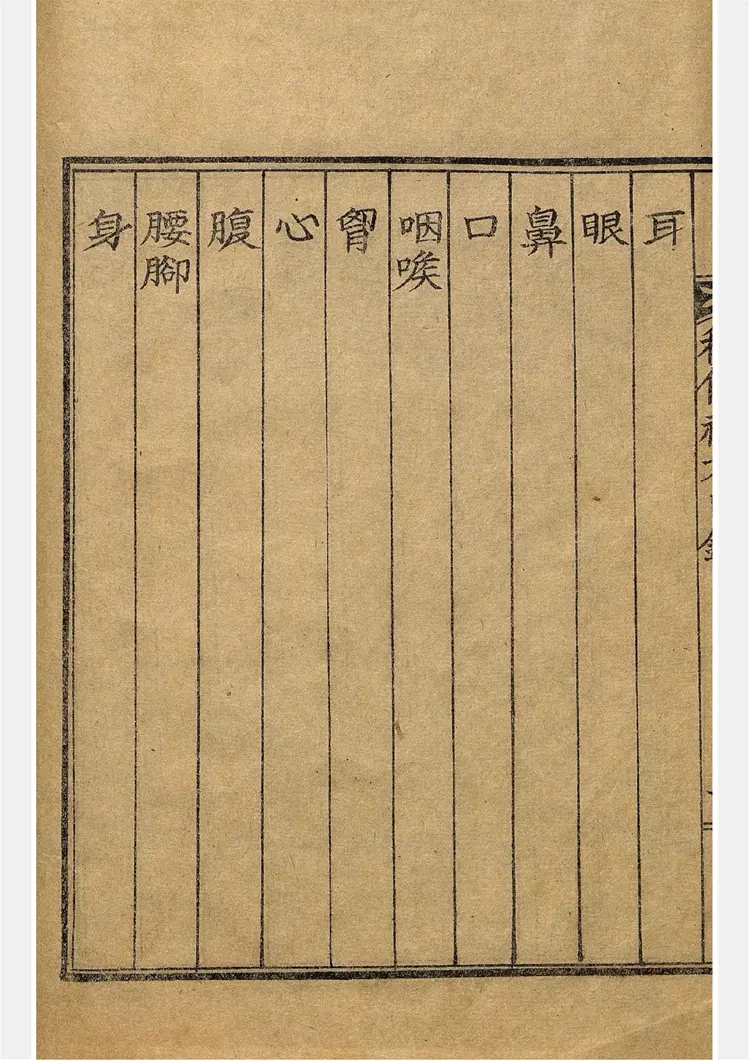 耳
眼
鼻
口
咽喉
胷
心
腹
腰腳
身